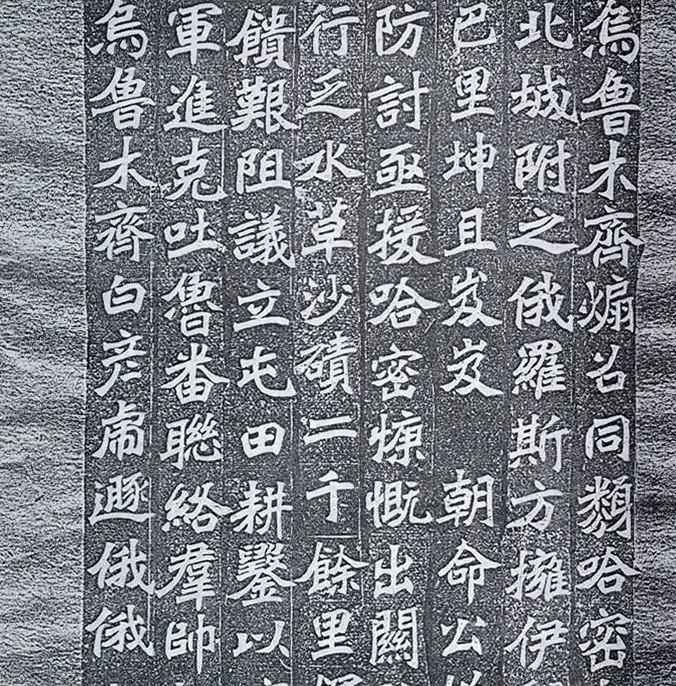 烏魯木齊煽召同類哈密
北城附之俄羅斯方擁伊
巴里坤且岌岌 朝命公
防討亟援哈密慷慨出關
行乏水草沙磧二千餘里
饋艱阻議立屯田耕鑿以
軍進克吐魯番聯絡羣帥
烏魯木齊白彥虎遯俄俄